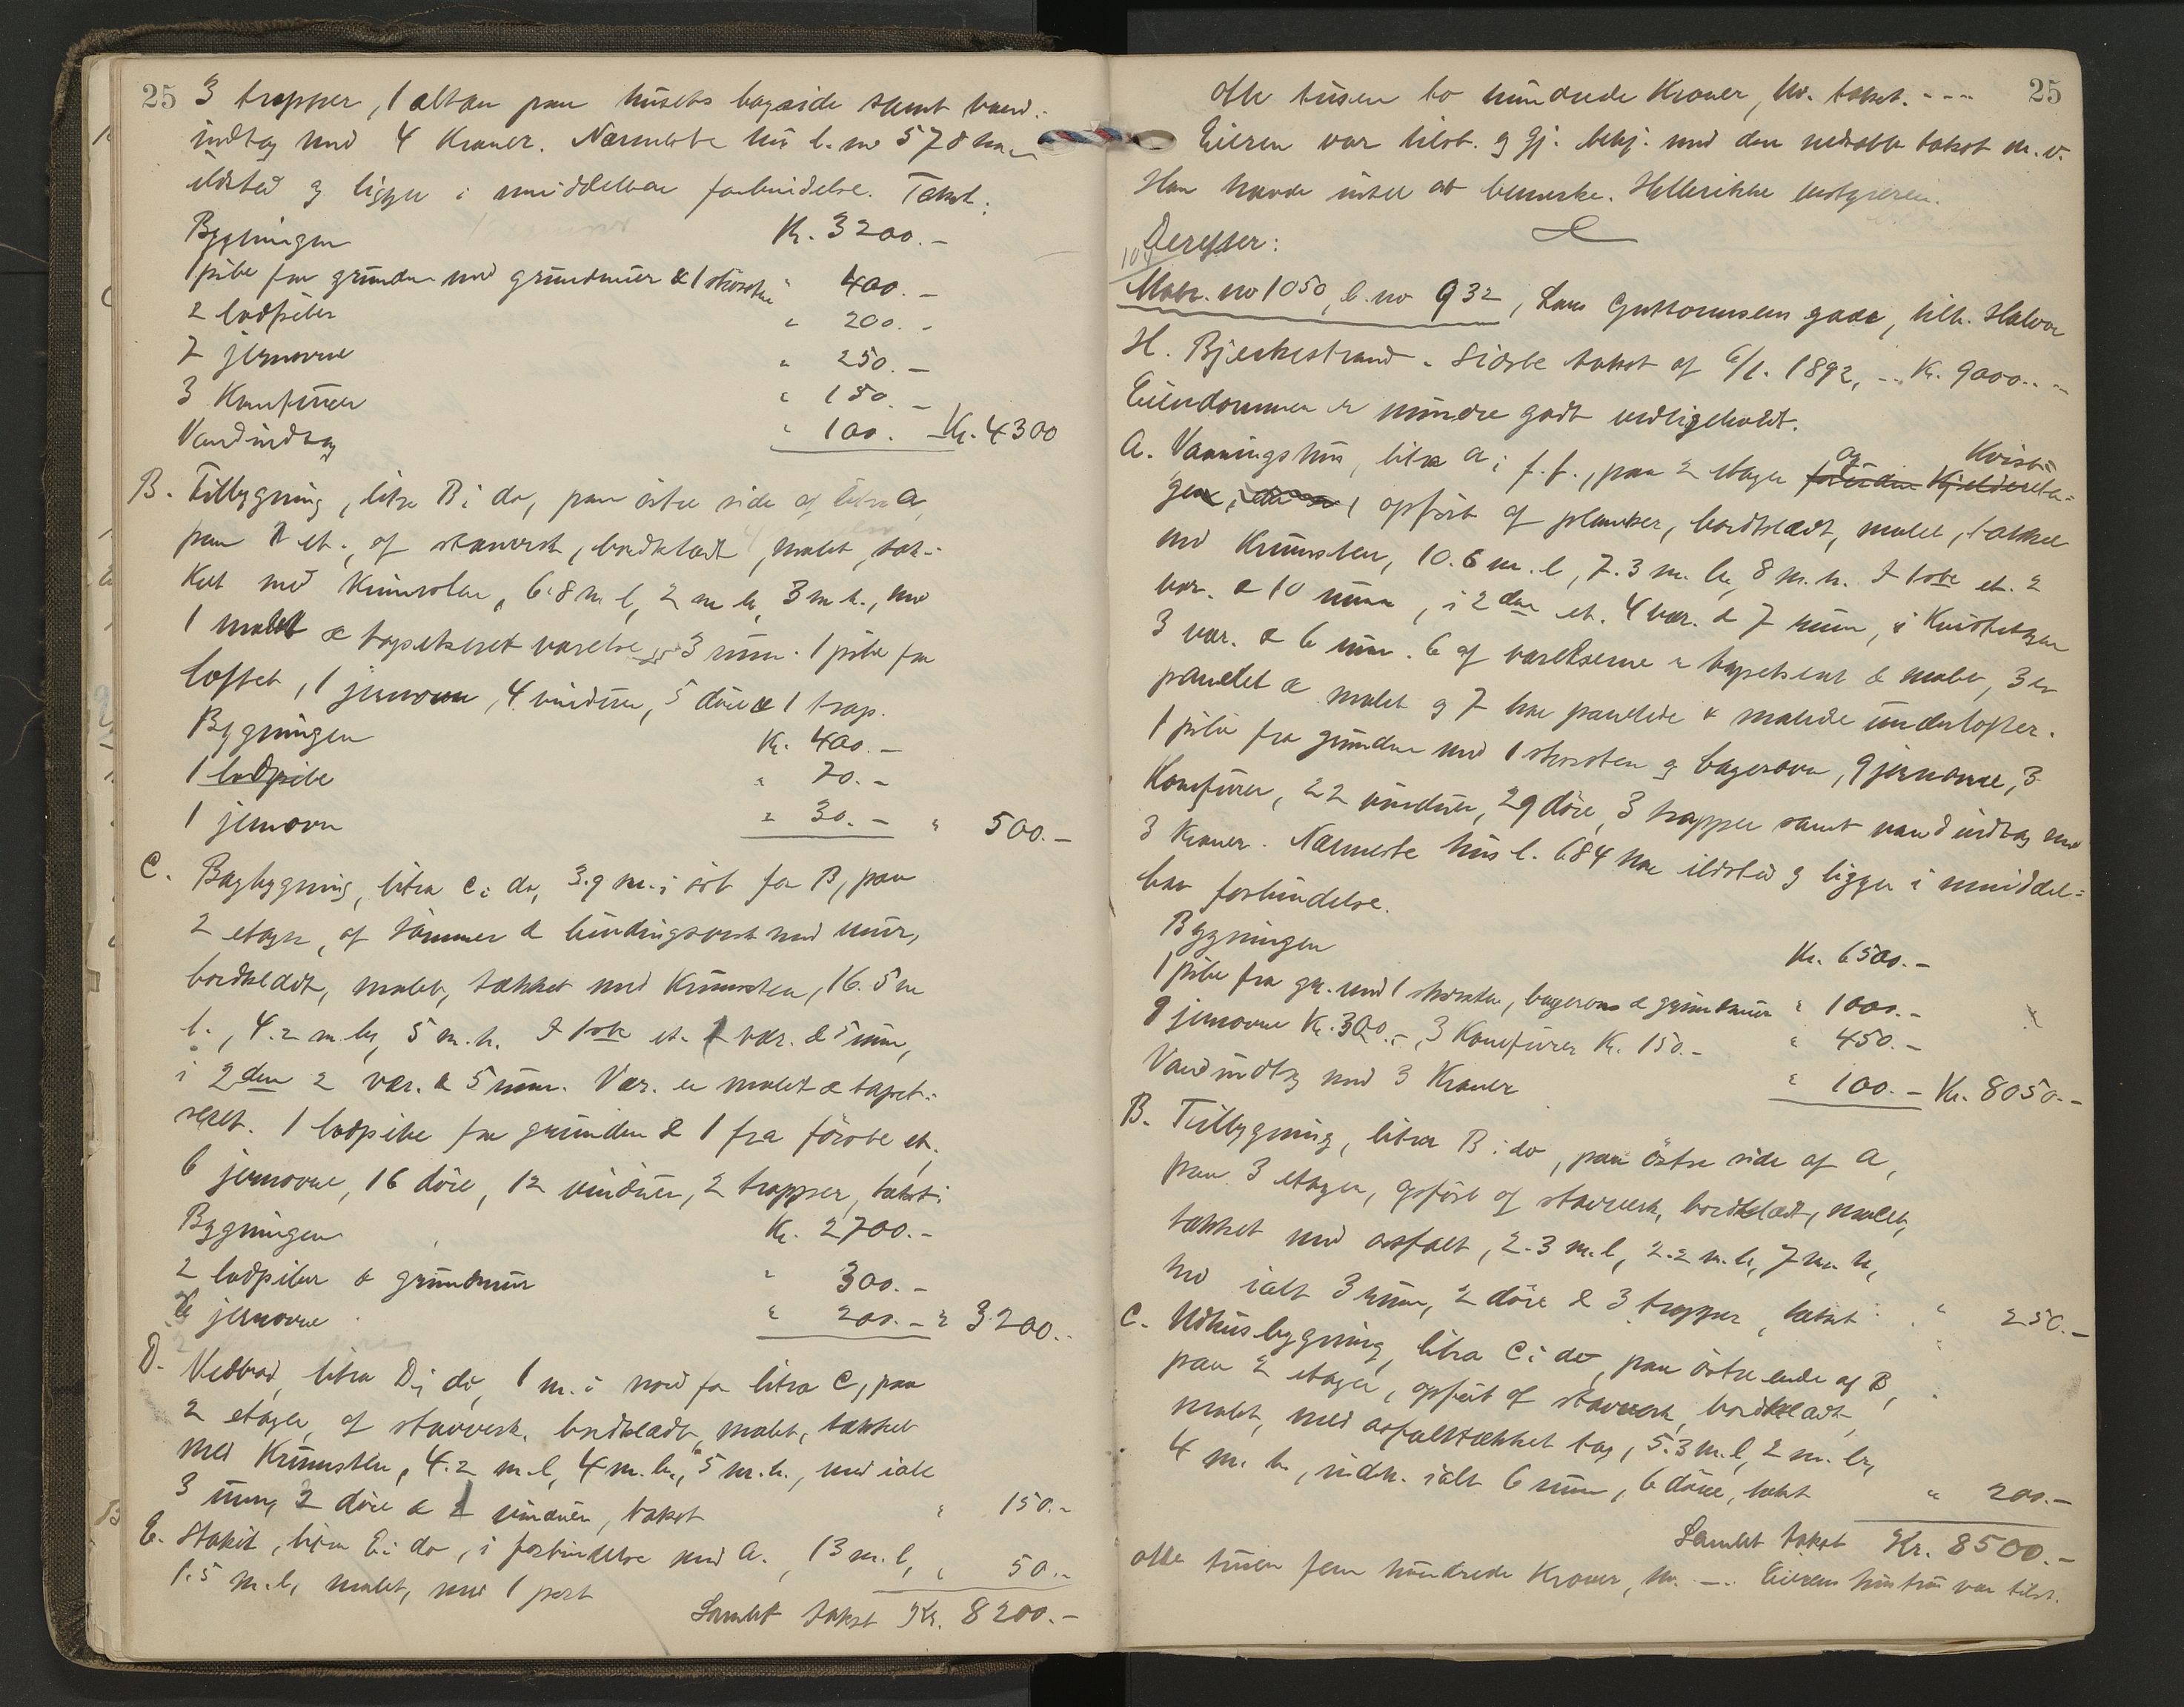 25 3 trapper, 1 altan paa husets bagside samt vand-
indtag med 4 Kraner. Nærmeste hus l. no 578 har
ildsted og ligger i umiddelbar forbindelse. Takst:
Bygningen Kr. 3200.-
1 pibe fra grunden med grundmur & 1 skorsten " 400.-
2 lodpiber " 200.-
7 jernovne " 250.-
3 Komfurer " 150.-
Vandindtag " 100.- Kr. 4300
B. Tilbygning, litra B i do, paa östre side af litra A,
paa 1 et., af stavverk, bordklædt, malet, tæk-
ket med Krumsten, 6.8 m l, 2 m b, 3 m h., med
1 malet & tapetseret værelse 3 rum. 1 pibe fra
loftet, 1 jernovn, 4 vinduer, 5 döre & 1 trap.
Bygningen Kr. 400.-
1 lodpibe " 70.-
1 jernovn " 30.- " 500.-
C. Bagbygning, litra C i do, 3.9 m. i öst for B, paa
2 etager, af tömmer & bindingsverk med mur,
bordklædt, malet, tækket med Krumsten, 16.5 m
l., 4.2 m. b, 5 m. h. I 1ste et. 2 vær. & 5 rum,
i 2den 2 vær. & 5 rum. Vær. er malet & tapet-
seret. 1 lodpibe fra grunden & 1 fra förste et.,
6 jernovne, 16 döre, 12 vinduer, 2 trapper, takst:
Bygningen Kr. 2700.-
2 lodpiber & grundmur " 300.-
6 jernovne " 200.- " 3200.-
D. Vedbod, litra D i do, 1 m. i nord for litra C, paa
2 etager, af stavverk, bordklædt, malet, tækket
med Krumsten, 4.2 m. l, 4 m. b., 5 m. h., med ialt
3 rum, 2 döre & 2 vinduer, takst " 150.-
E. Stakit, litra E i do, i forbindelse med A., 13 m. l,
1.5 m. h, malet, med 1 port " 50.-
Samlet takst Kr. 8200.-
otte tusen to hundrede Kroner, hv. takst. --- 25
Eieren var tilst. og gj. bekj. med den nedsatte takst m. v.
Han havde intet at bemerke. Heller ikke bestyreren.
Derefter:
104
Matr. no 1050, b. no 932, Lars Guttormsens gade, tilh. Halvor
H. Bjerkestrand. Sidste takst af 6/1. 1892, -- Kr. 9000.-
Eiendommen er mindre godt vedligeholdt.
A. Vaaningshus, litra A i f. f., paa 2 etager foruden Kjeldereta- og Kvist-
ge, opfört af planker, bordklædt, malet, tækket
med Krumsten, 10.6 m. l, 7.3 m. b, 8 m. h. I 1ste et. 2
vær. & 10 rum, i 2den et. 4 vær. & 7 rum, i Kvistetagen
3 vær. & 6 rum. 6 af værelserne er tapetseret & malet, 3 er
panelet & malet og 7 har panelede & malede underlofter.
1 pibe fra grunden med 1 skorsten og bagerovn, 9 jernovne, 3
Komfurer, 22 vinduer, 29 döre, 3 trapper samt vandindtag med
3 Kraner. Nærmeste hus l. 684 har ildsted og ligger i umiddel-
bar forbindelse.
Bygningen Kr. 6500.-
1 pibe fra gr. med 1 skorsten, bagerovn & grundmur " 1000.-
9 jernovne Kr. 300.-, 3 Komfurer Kr. 150.- " 450.-
Vandindtag med 3 Kraner " 100.- Kr. 8050.-
B. Tilbygning, litra B i do, paa östre side af A,
paa 3 etager, opfört af stavverk, bordklædt, malet,
tækket med asfalt, 2.3 m. l, 2.2 m. b, 7 m. h,
med ialt 3 rum, 2 döre & 3 trapper, takst " 250.-
C. Udhusbygning, litra C i do, paa östre ende af B,
paa 2 etager, opfört af stavverk, bordklædt,
malet, med asfalttækket tag, 5.3 m. l, 2 m. b,
4 m. h, indh. ialt 6 rum, 6 döre, takst " 200.-
Samlet takst Kr. 8500.-
otte tusen fem hundrede Kroner, hv. -- Eierens hustru var tilst.